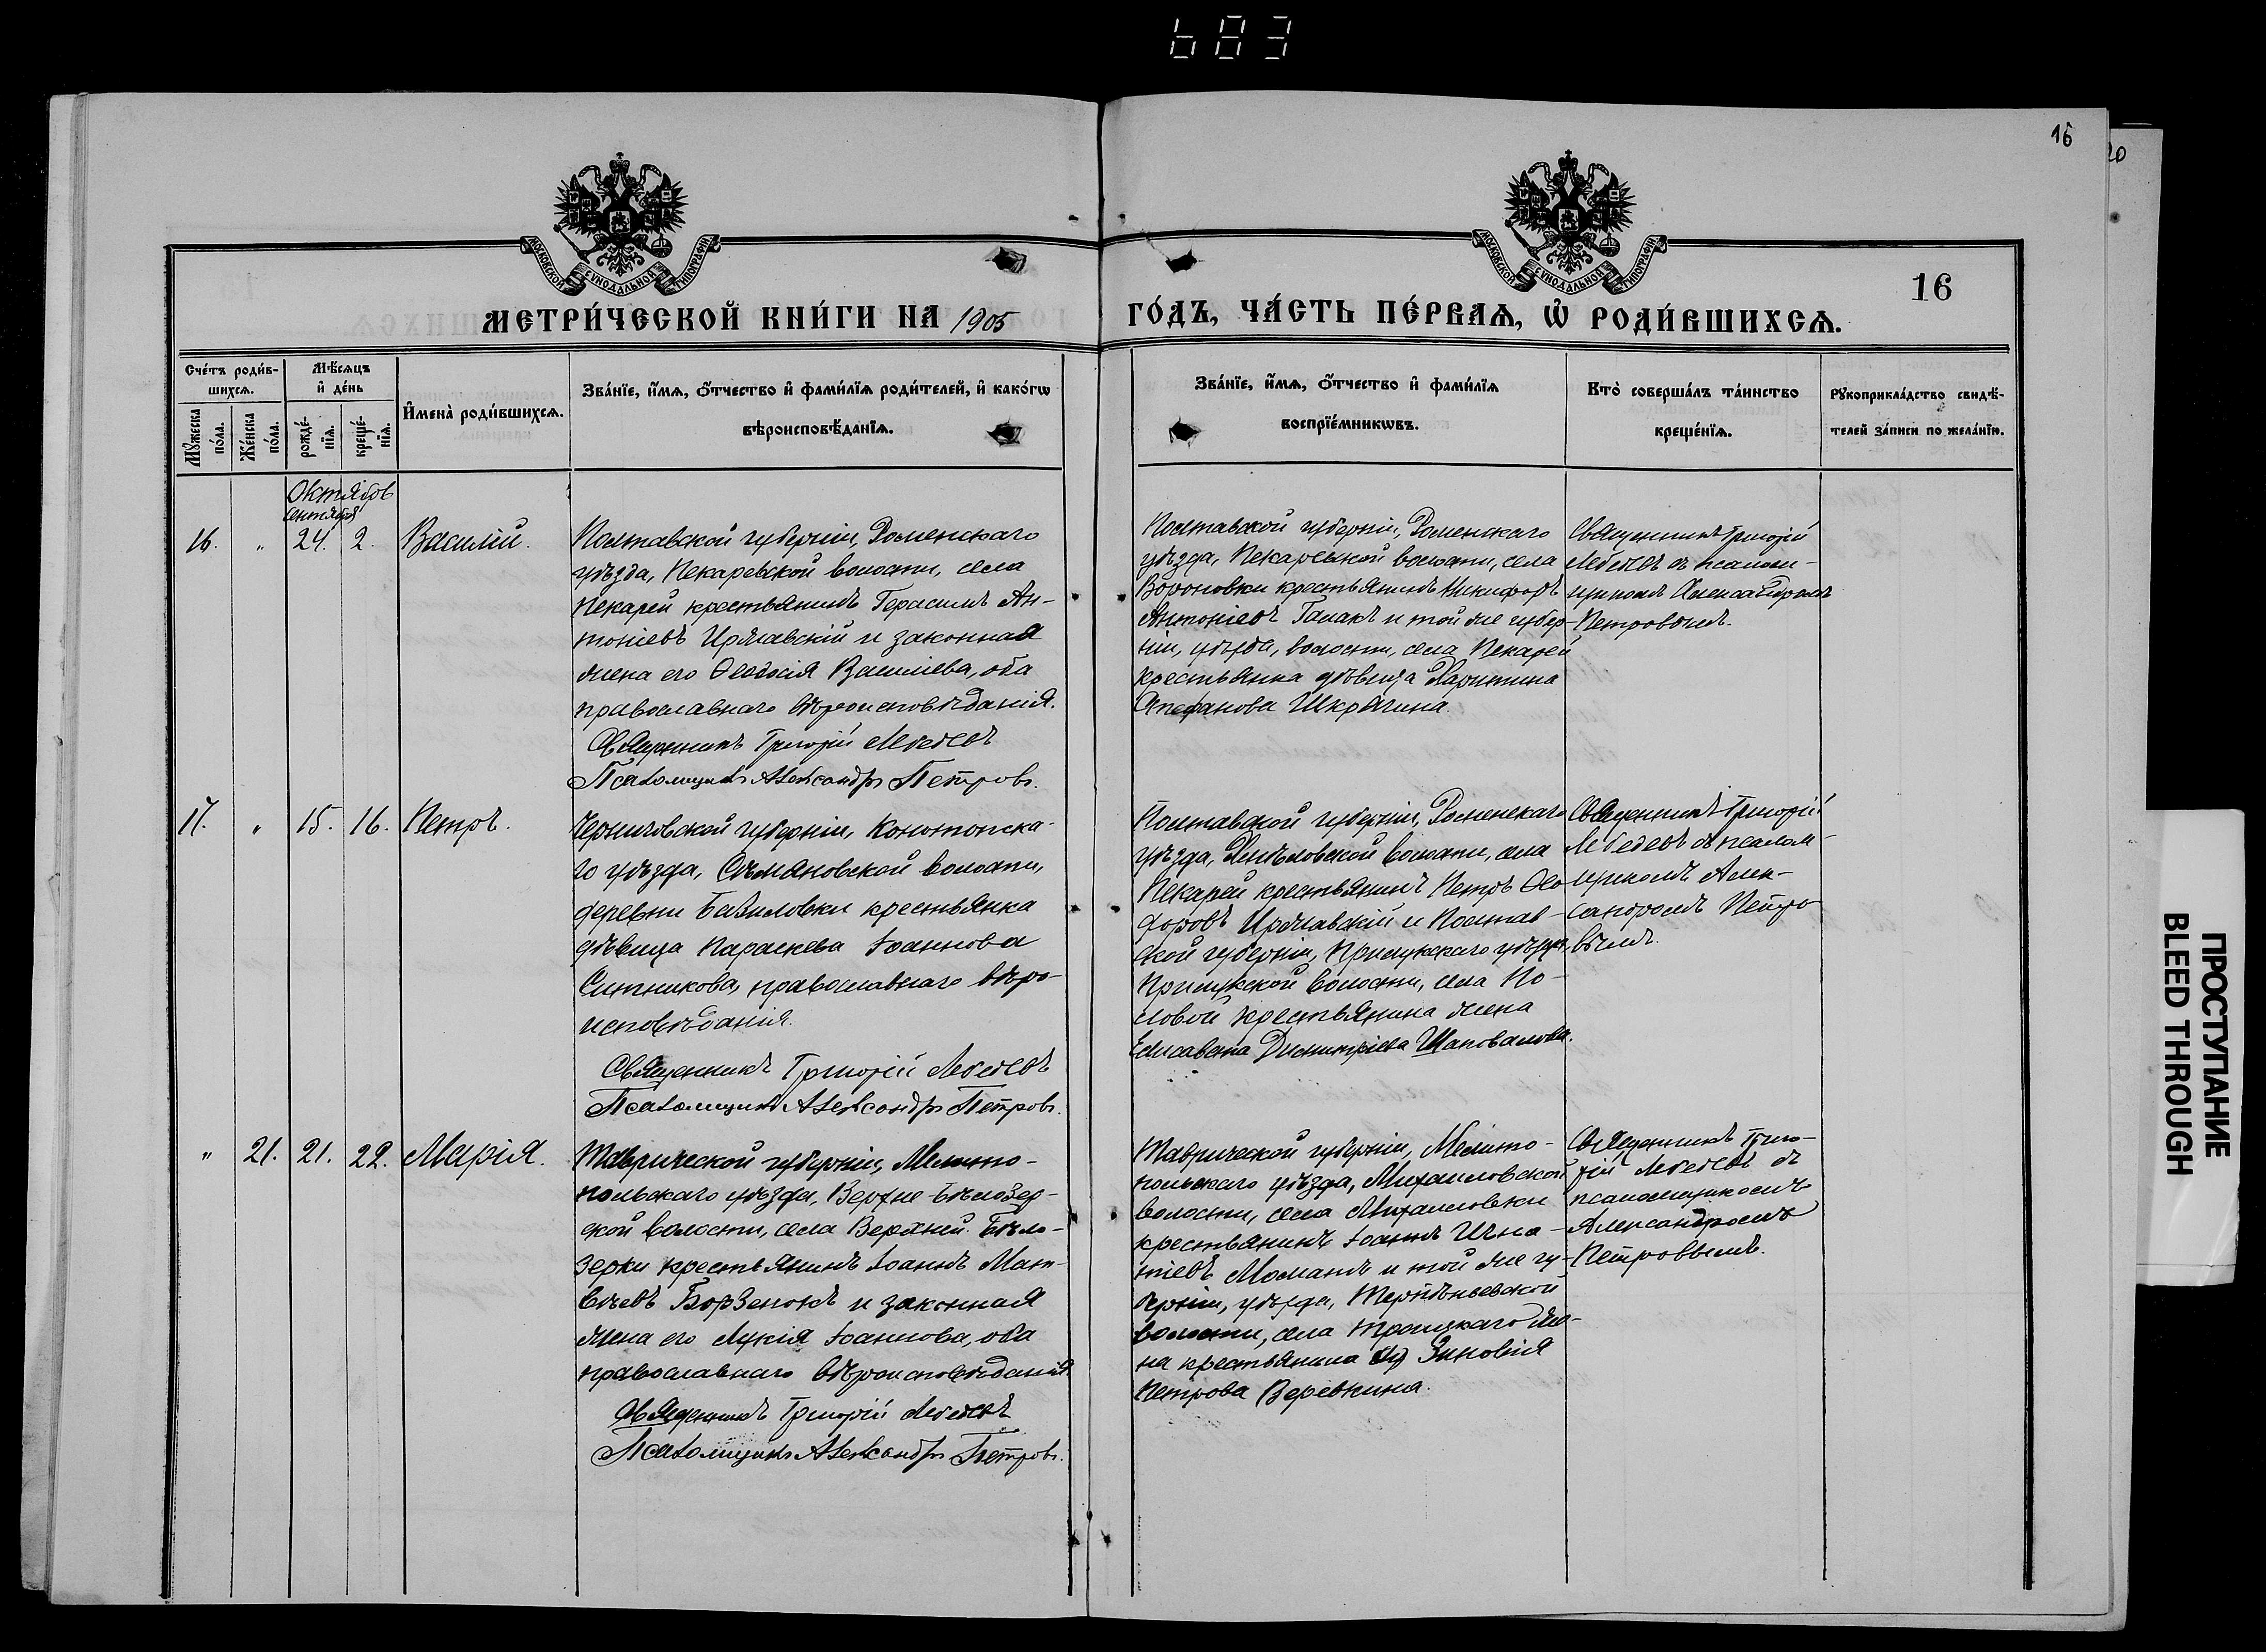 683
16
20
МОСКОВСКОЙ СѴНОДАЛЬНОЙ ТИПОГРАФІИ
МОСКОВСКОЙ СѴНОДАЛЬНОЙ ТИПОГРАФІИ
16
МЕТРИ́ЧЕСКОЙ КНИ́ГИ НА 1905
ГО́ДЪ, ЧА́СТЬ ПЕ́РВАѦ, Ѡ҆ РОДИ́ВШИХСѦ.
Сче́тъ роди́в-
шихсѧ.
Мꙋ́жеска
по́ла.
Же́нска
по́ла.
Мѣ́сѧцъ
и҆ де́нь
рожде́-
нїѧ.
креще́-
нїѧ.
И҆мена̀ роди́вшихсѧ.
Зва́нїе, и҆́мѧ, ѻ҆́тчество и҆ фами́лїѧ роди́телей, и҆ како́гѡ
вѣроисповѣ́данїѧ.
Зва́нїе, и҆́мѧ, ѻ҆́тчество и҆ фами́лїѧ
воспрїе́мникѡвъ.
Кто̀ соверша́лъ та́инство
креще́нїѧ.
Рꙋкоприкла́дство свидѣ́-
телей за́писи по жела́нїю.
Октябрь
Сентября
16. " 24. 2. Василій.
Полтавской губерніи, Роменскаго
уѣзда, Пекаревской волости, села
Пекарей крестьянинъ Герасимъ Ан-
тоніевъ Иржавскій и законная
жена его Ѳеодосія Василіева, оба
православнаго вѣроисповѣданія.
Священникъ Григорій Лебедевъ
Псаломщикъ Александръ Петровъ.
Полтавской губерніи, Роменскаго
уѣзда, Пекаревской волости, села
Вороновки крестьянинъ Никифоръ
Антоніевъ Галакъ и той же губер-
ніи, уѣзда, волости, села Пекарей
крестьянка дѣвица Харитина
Стефанова Шкрягина.
Священникъ Григорій
Лебедевъ съ псалом-
щикомъ Александромъ
Петровымъ.
17. " 15. 16. Петръ.
Черниговской губерніи, Конотопска-
го уѣзда, Съмяновской волости,
деревни Базиловки крестьянка
дѣвица Параскева Іоаннова
Ситникова, православнаго вѣро-
исповѣданія.
Священникъ Григорій Лебедевъ
Псаломщикъ Александръ Петровъ.
Полтавской губерніи, Роменскаго
уѣзда, волости, села
Пекарей крестьянинъ Петръ Ѳео-
доровъ Иржавскій и Полтав-
ской губерніи, Прилукскаго уѣзда,
Прилукской волости, села По-
ловой крестьянина жена
Елисавета Димитріева Шаповалова.
Священникъ Григорій
Лебедевъ съ псалом-
щикомъ Алек-
сандромъ Петро-
вымъ.
" 21. 21. 22. Марія.
Таврической губерніи, Мелито-
польскаго уѣзда, Верхне-Бѣлозер-
ской волости, села Верхней Бѣло-
зерки крестьянинъ Іоаннъ Мат-
вѣевъ Борзенокъ и законная
жена его Лукія Іоаннова, оба
православнаго вѣроисповѣданія.
Священникъ Григорій Лебедевъ
Псаломщикъ Александръ Петровъ.
Таврической губерніи, Мелито-
польскаго уѣзда, Михайловской
волости, села Михайловки
крестьянинъ Іоаннъ Игна-
тіевъ Момантъ и той же гу-
берніи, уѣзда, Терпѣньевской
волости, села Троицкаго же-
на крестьянина Зиновія
Петрова Веревкина.
Священникъ Григо-
рій Лебедевъ съ
псаломщикомъ
Александромъ
Петровымъ.
ПРОСТУПАНИЕ
BLEED THROUGH